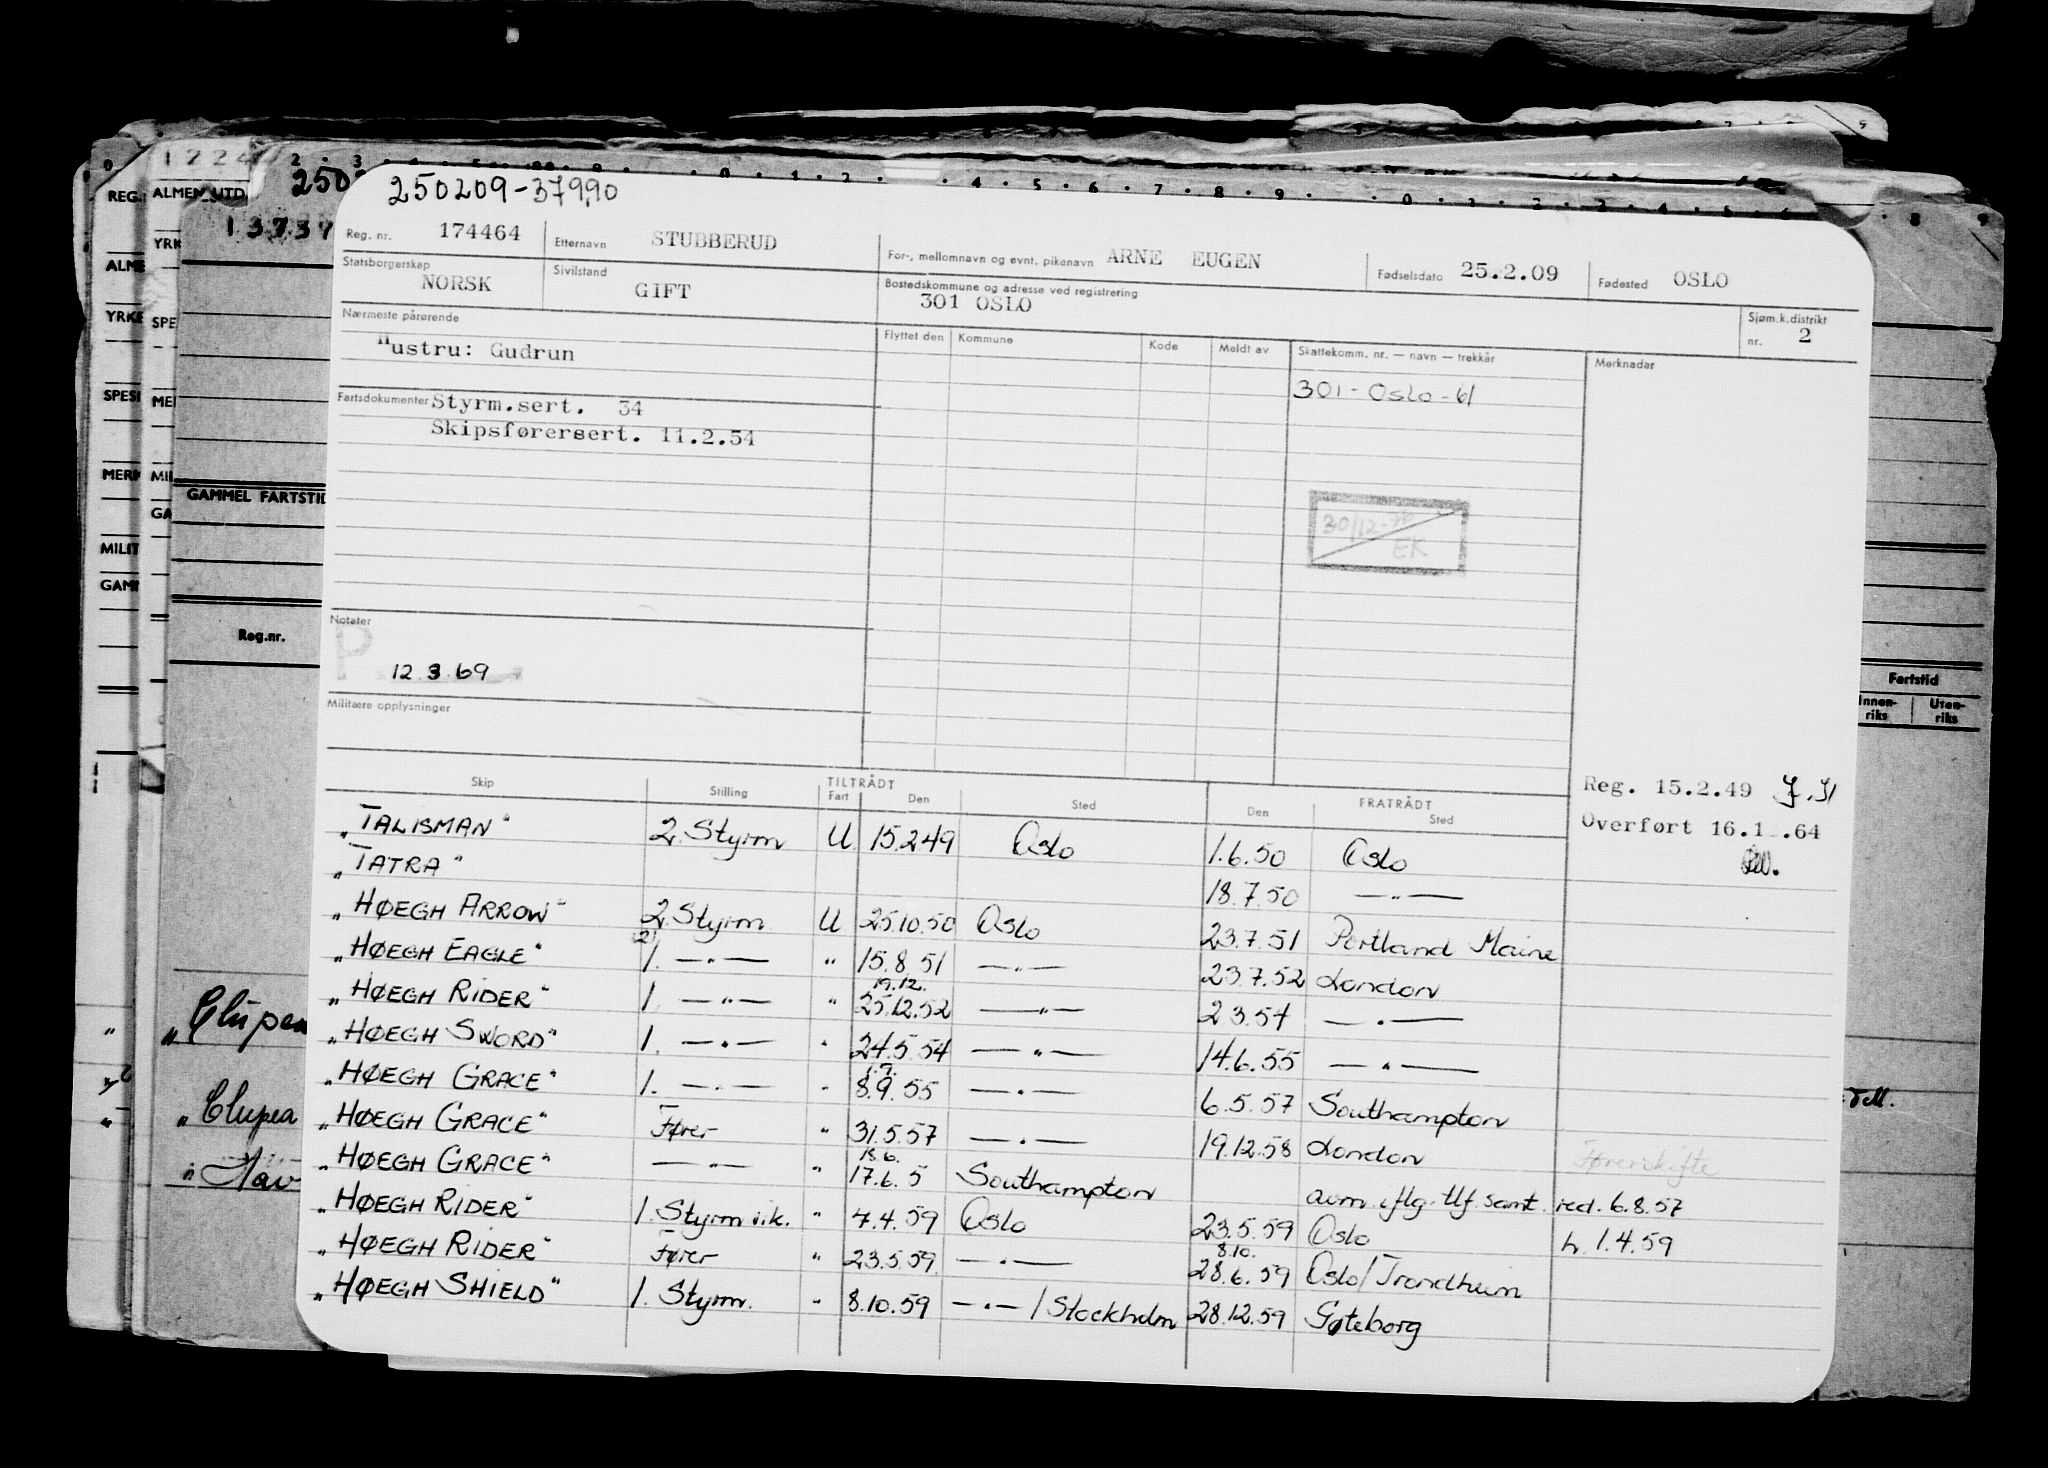 250209-37990
Reg. nr. 174464 Etternavn STUBBERUD For-, mellomnavn og evnt. pikenavn ARNE EUGEN Fødselsdato 25.2.09 Fødested OSLO
Statsborgerskap NORSK Sivilstand GIFT Bostedskommune og adresse ved registrering 301 OSLO Sjøm.k.distrikt nr. 2
Nærmeste pårørende Flyttet den Kommune Kode Meldt av Skattekomm. nr. — navn — trekkår Merknadar
Hustru: Gudrun
301 - Oslo - 61
Fartsdokumenter Styrm.sert. 34
Skipsførersert. 11.2.54
30/12-
EK
Notater
P 12.3.69
Militære opplysninger
Reg. 15.2.49
Overført 16.1 .64
Skip Stilling TILTRÅDT Fart Den Sted FRATRÅDT Den Sted
„TALISMAN" 2. Styrm U 15.2.49 Oslo 1.6.50 Oslo
„TATRA" 18.7.50 —"—
„HØEGH ARROW" 2. Styrm U 25.10.50 Oslo 23.7.51 Portland Maine
(2)
„HØEGH EAGLE" 1. —"— " 15.8.51 —"— 23.7.52 London
19.12.
„HØEGH RIDER" 1. —"— " 25.12.52 —"— 2.3.54 —"—
„HØEGH SWORD" 1. —"— " 24.5.54 —"— 14.6.55 —"—
1.7.
„HØEGH GRACE" 1. —"— " 8.9.55 —"— 6.5.57 Southampton
„HØEGH GRACE" Fører " 31.5.57 —"— 19.12.58 London Førerskifte
18.6.
„HØEGH GRACE" —"— " 17.6.5 Southampton avm. iflg. tlf. samt. red. 6.8.57
„HØEGH RIDER" 1. Styrm vik. " 7.4.59 Oslo 23.5.59 Oslo h. 1.4.59
8.10.
„HØEGH RIDER" Fører " 23.5.59 —"— 28.6.59 Oslo/Trondheim
„HØEGH SHIELD" 1. Styrm. " 8.10.59 —"—/Stockholm 28.12.59 Gøteborg
1224
ALMEN UTD
GAMMEL FARTSTID
Reg.nr.
„Clupea
„Clupea
Fartstid
Innen-riks Uten-riks